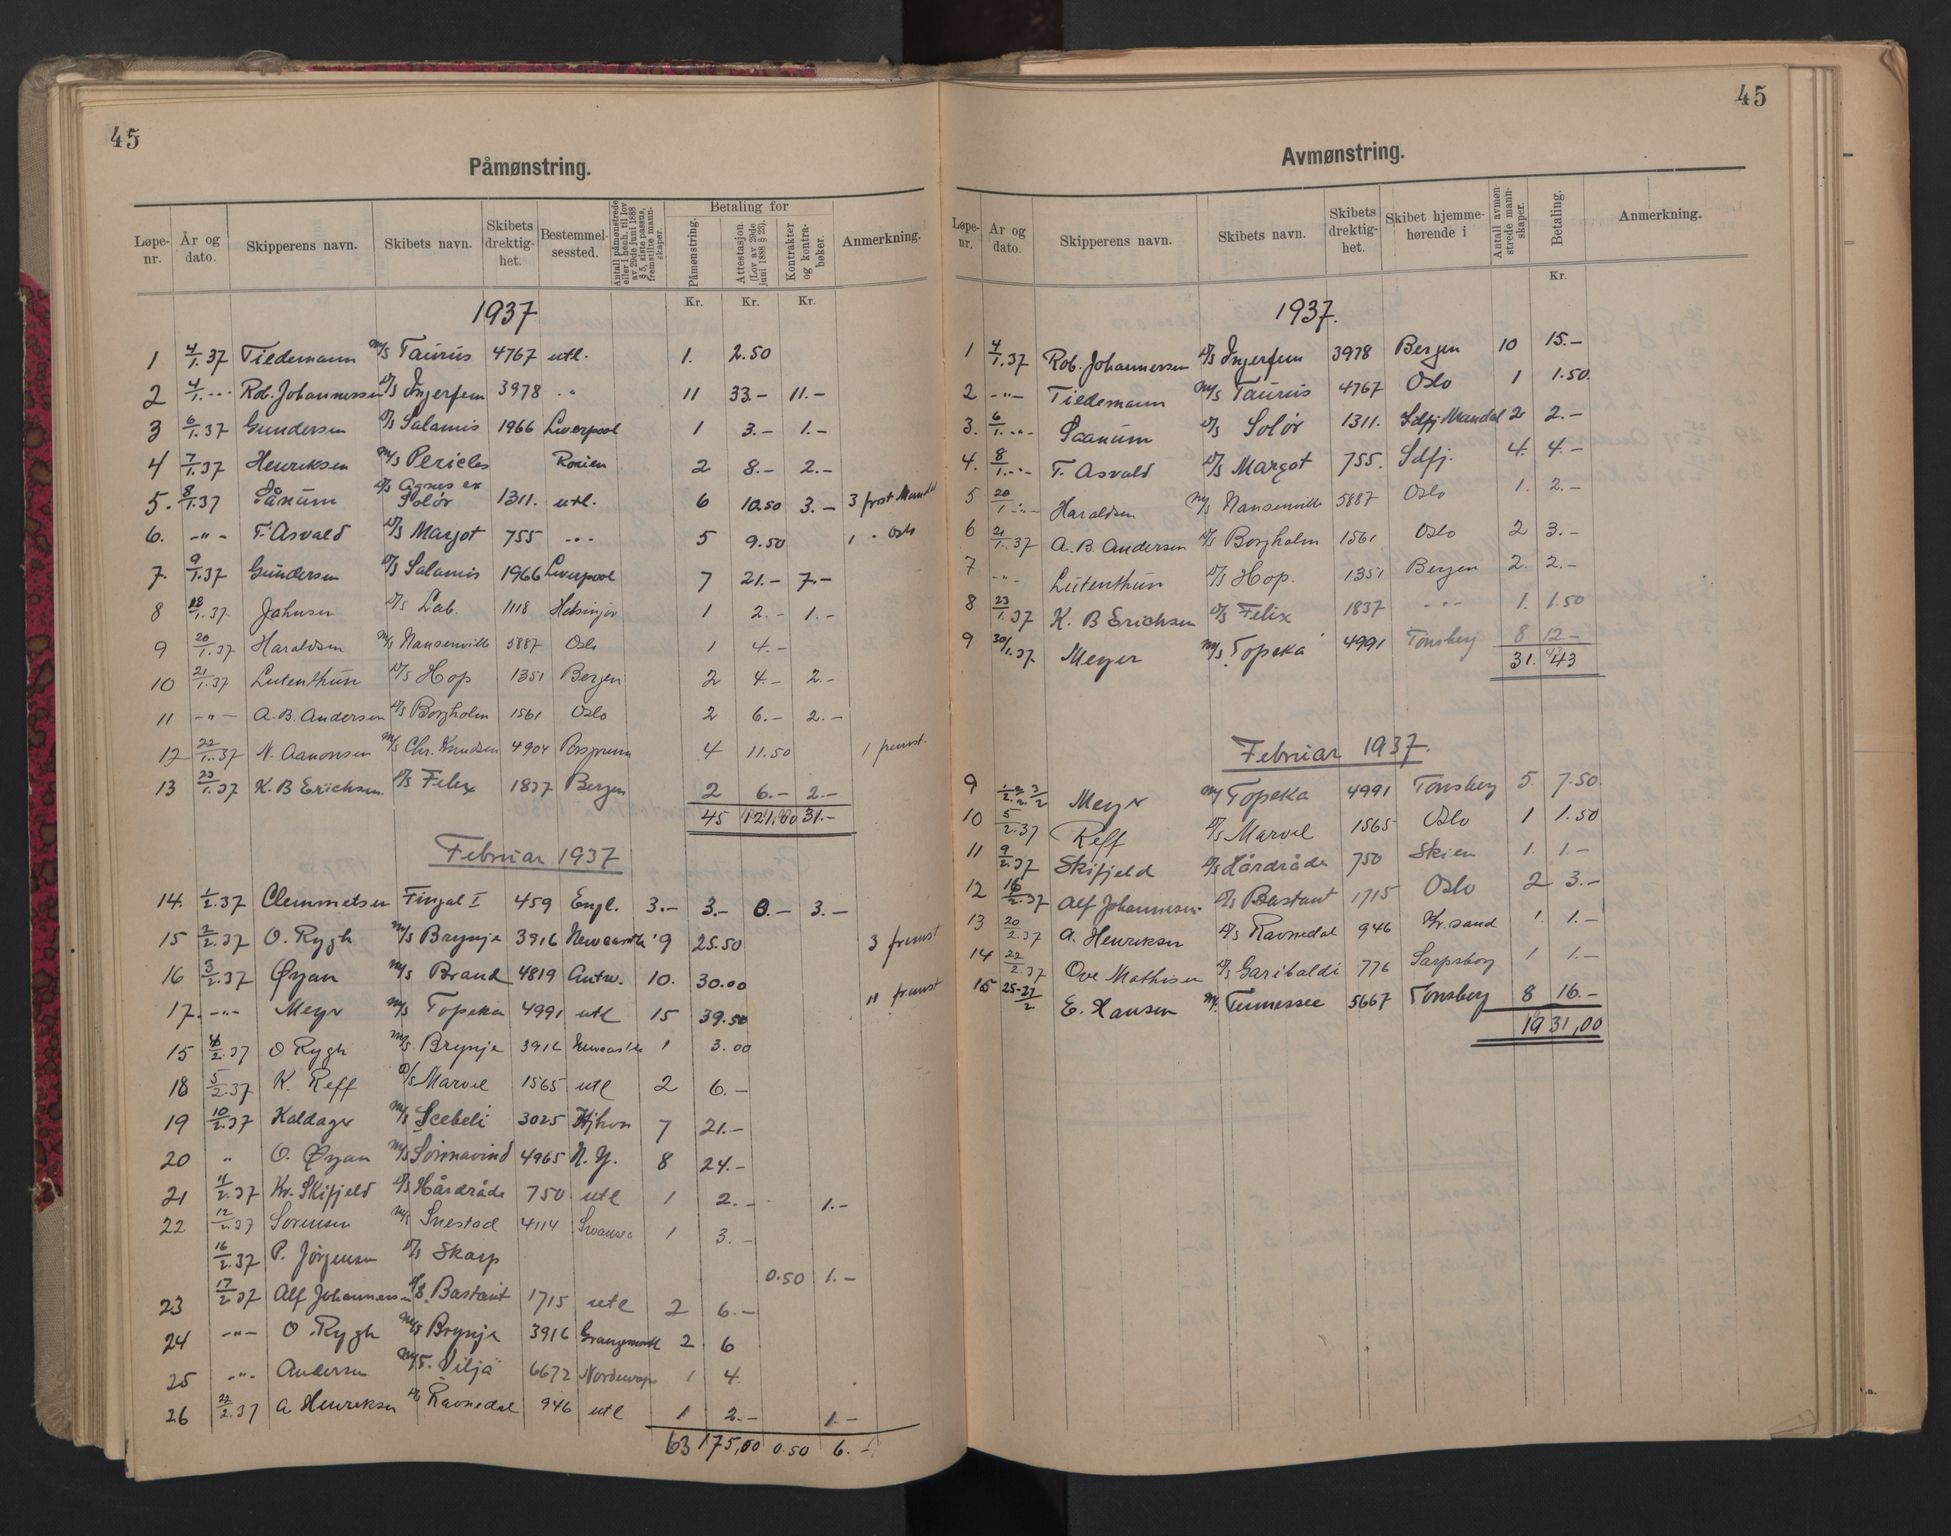 45
Påmønstring.
Løpe-nr. År og dato. Skipperens navn. Skibets navn. Skibets drektig-het. Bestemmel-sessted. Antall påmønstrede eller i henh. til lov av 29de juni 1888 § 5, siste passus, fremstilte mann-skaper. Betaling for Påmønstring. Attestasjon. (Lov av 29de juni 1888 § 23). Kontrakter og kontra-bøker. Anmerkning.
Kr. Kr. Kr.
1937
1 4/1.37 Tiedemann M/S Taurus 4767 utl. 1. 2.50
2 4/1.-"- Rob. Johannessen D/S Ingerfem 3978 -"- 11 33.- 11.-
3 6/1.37 Gundersen D/S Salamis 1966 Liverpool 1 3.- 1.-
4 7/1.37 Henriksen M/S Pericles 2 8.- 2.-
5. 8/1.37 Saanum D/S Agnes ex Solør 1311. utl. 6 10.50 3.- 3 frst Mandal
6. -"- T. Asvald D/S Margot 755 -"- 5 9.50 1 " Oslo
7. 9/1.37 Gundersen D/S Salamis 1966 Liverpool 7 21.- 7.-
8 18/1.37 Jahnsen D/S Lab. 1118 Helsingør 1 2.- 1.-
9 20/1.37 Haraldsen M/S Nansenville 5887 Oslo 1 4.-
10 21/1.37 Lutenthun D/S Hop 1351 Bergen 2 4.- 2.-
11 -"- A. B. Andersen D/S Borgholm 1561 Oslo 2 6.- 2.-
12 22/1.37 N. Aanonsen M/S Chr. Knudsen 4904 4 11.50 1 fremst.
13 23/1.37 K. B Erichsen D/S Felix 1837 Bergen 2 6.- 2.-
45 121.00 31.-
Februar 1937
14. 1/2.37 Clemmetsen Fingal I 459 Engl. 3.- 3.- 0.- 3.-
15 2/2.37 O. Rygh M/S Brynje 3916 Newcastle 9 25.50 3 fremst
16 3/2.37 Øyan M/S Brand 4819 Antw. 10. 30.00
17. -"- Meyr M/S Topeka 4991 utl 15 39.50 11 fremst
15 4/2.37 O Rygh M/S Brynje 3916 Newcastle 1 3.00
18 5/2.37 K. Reff D/S Marvel 1565 utl 2 6.-
19 10/2.37 Kaldager M/S Scebeli 3025 7 21.-
20 " O. Øyan M/S Sørvangvind 4965 N. Y. 8 24.-
21 11/2.37 Kr. Skifjeld D/S Hårdråde 750 utl 1 2.- 1.-
22 12/2.37 Sørensen M/S Snestad 4114 Swansea 1 3.-
16/2.37 P. Jörgensen D/S Skarp 0.50 1.-
23 17/2.37 Alf Johannessen D/S. Bastant 1715 utl 2 6.-
24 -"- O. Rygh M/S Brynje 3916 Grangemouth 2 6
25 -"- Andersen M/S. Vilja 6672 1 4.
26 22/2.37 A Henriksen D/S Ravnedal 946 utl 1 2.- 1.-
63 175,00 0.50 6.-
45
Avmønstring.
Løpe-nr. År og dato. Skipperens navn. Skibets navn. Skibets drektig-het. Skibet hjemme-hørende i Antall avmøn-strede mann-skaper. Betaling. Anmerkning.
Kr.
1937.
1 4/1.37 Rob. Johannessen D/S Ingerfem 3978 Bergen 10 15.-
2 -"- Tiedemann M/S Taurus 4767 Oslo 1 1.50
3. 6/1.-"- Saanum D/S Solør 1311. Sdfj. Mandal 2 2.-
4. 8/1.-"- T. Asvald D/S Margot 755. Sdfj. 4. 4.-
5 20/1.-"- Haraldsen M/S Nansenville 5887 Oslo 1. 2.-
6 21/1.37 A. B. Andersen D/S Borgholm 1561 Oslo 2 3.-
7 -"- Lutenthun D/S Hop. 1351 Bergen 2. 2.-
8 23/1.37 K. B Erichsen D/S Felix 1837 -"- 1. 1.50
9 30/1.37. Meyer M/S Topeka 4991 Tønsberg 8 12.-
31. 43
Februar 1937.
9 1/2. 2/2. 3/2 Meyr M/S Topeka 4991 Tønsberg 5. 7.50
10 5/2.37 Reff D/S Marvel 1565 Oslo 1 1.50
11 9/2.37 Skifjeld D/S Hårdråde 750 Skien 1. 1.-
12 16/2.37 Alf Johannessen D/S Bastant 1715 Oslo 2 3.-
13 20/2.37 A. Henriksen D/S Ravnedal 946 Kr.sand 1. 1.-
14 22/2.37 Ove Mathisen D/S Garibaldi 776 Sarpsborg 1 1.-
15 25-27/2 E. Hansen M/S Tennessee 5667 Tønsberg 8 16.-
19 31,00